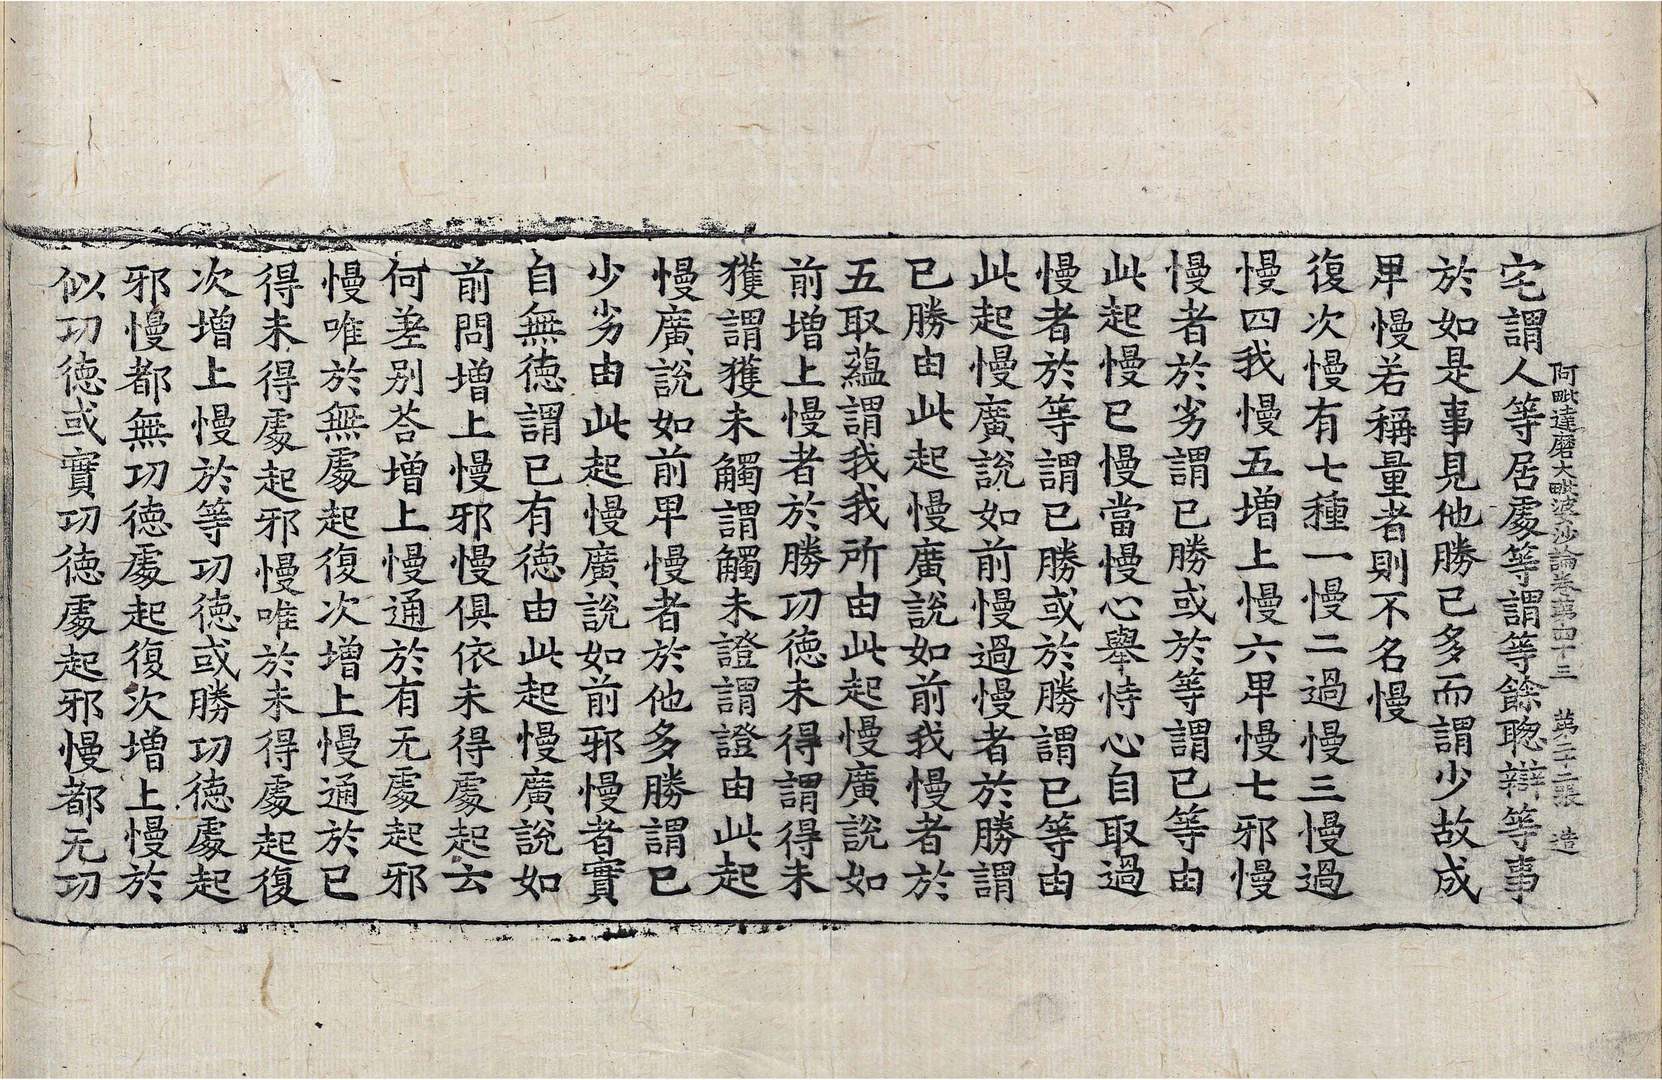 阿毗達磨大毗婆沙論卷第四十三　第二十二張　造
宅謂人等居處等謂等餘聦辯等事
於如是事見他勝己多而謂少故成
卑慢若稱量者則不名慢
復次慢有七種一慢二過慢三慢過
慢四我慢五增上慢六卑慢七邪慢
慢者於劣謂己勝或於等謂己等由
此起慢已慢當慢心舉恃心自取過
慢者於等謂己勝或於勝謂己等由
此起慢廣說如前慢過慢者於勝謂
己勝由此起慢廣說如前我慢者於
五取蘊謂我我所由此起慢廣說如
前增上慢者於勝功德未得謂得未
獲謂獲未觸謂觸未證謂證由此起
慢廣說如前卑慢者於他多勝謂己
少劣由此起慢廣說如前邪慢者實
自無德謂己有德由此起慢廣說如
前問增上慢邪慢俱依未得處起云
何差別荅增上慢通於有无處起邪
慢唯於無處起復次增上慢通於已
得未得處起邪慢唯於未得處起復
次增上慢於等功德或勝功德處起
邪慢都無功德處起復次增上慢於
似功德或實功德處起邪慢都无功